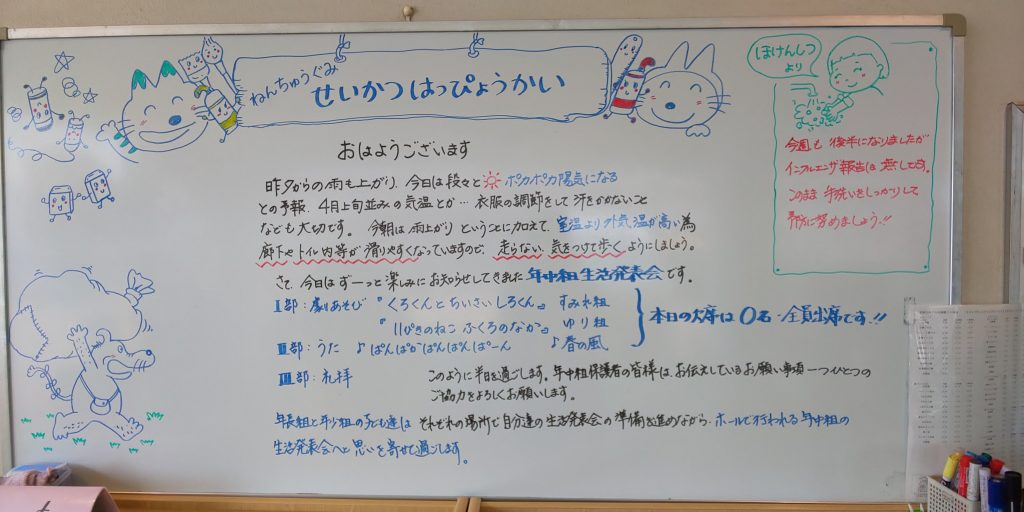 ねんちゅうぐみ
せいかつはっぴょうかい
ほけんしつ
より
今週も後半になりましたが
インフルエンザ報告は無しです。
このまま手洗いをしっかりして
予防に努めましょう!!
おはようございます
昨夕からの雨も上がり、今日は段々とポカポカ陽気になる
との予報、4月上旬並みの気温とか…衣服の調節をして汗をかかないこと
なども大切です。今朝は雨上がりということに加えて、室温より外気温が高い為
廊下やトイレ内等が滑りやすくなっていますので、走らない、気をつけて歩くようにしましょう。
さて、今日はずーっと楽しみにお知らせしてきました年中組生活発表会です。
Ⅰ部:劇あそび『くろくんとちいさいしろくん』すみれ組
『11ぴきのねこ ふくろのなか』ゆり組
本日の欠席は0名・全員出席です!!
Ⅱ部:うた ♪ぱんぱかぱんぱんぱーん ♪春の風
Ⅲ部:礼拝 このように半日を過ごします。年中組保護者の皆様は、お伝えしているお願い事項一つひとつの
ご協力をよろしくお願いします。
年長組と年少組の子ども達は それぞれの場所で自分達の生活発表会の準備を進めながら、ホールで行われる年中組の
生活発表会へと思いを寄せて過ごします。